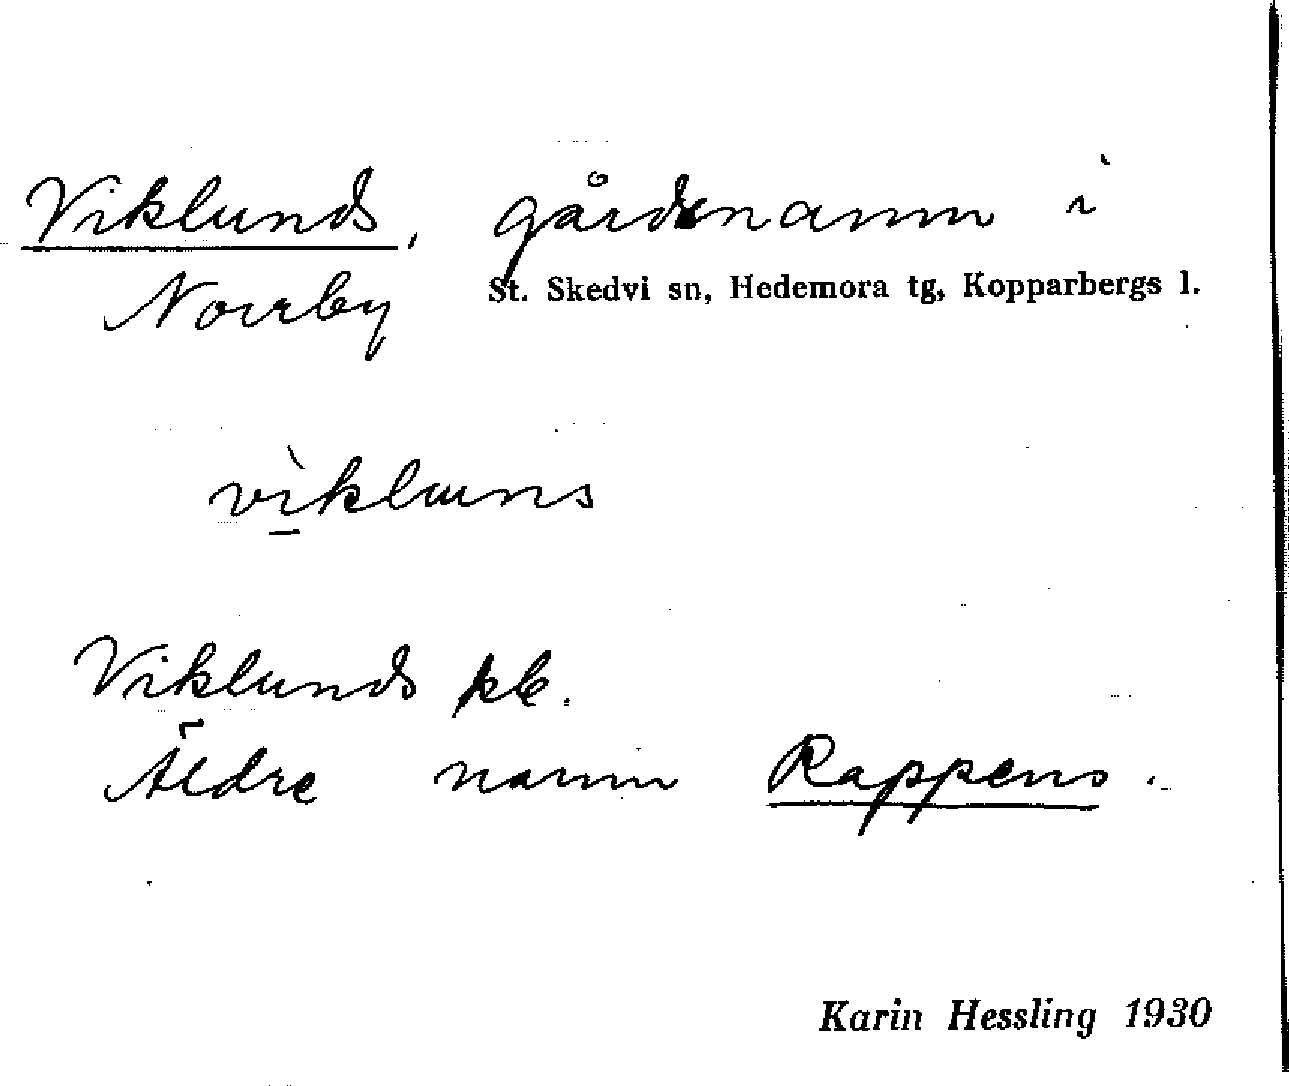 Viklunds, gårdsnamn i
Norrby St. Skedvi sn, Hedemora tg, Kopparbergs l.
vìkluns
Viklunds kb.
Äldre namn Rappens.
Karin Hessling 1930